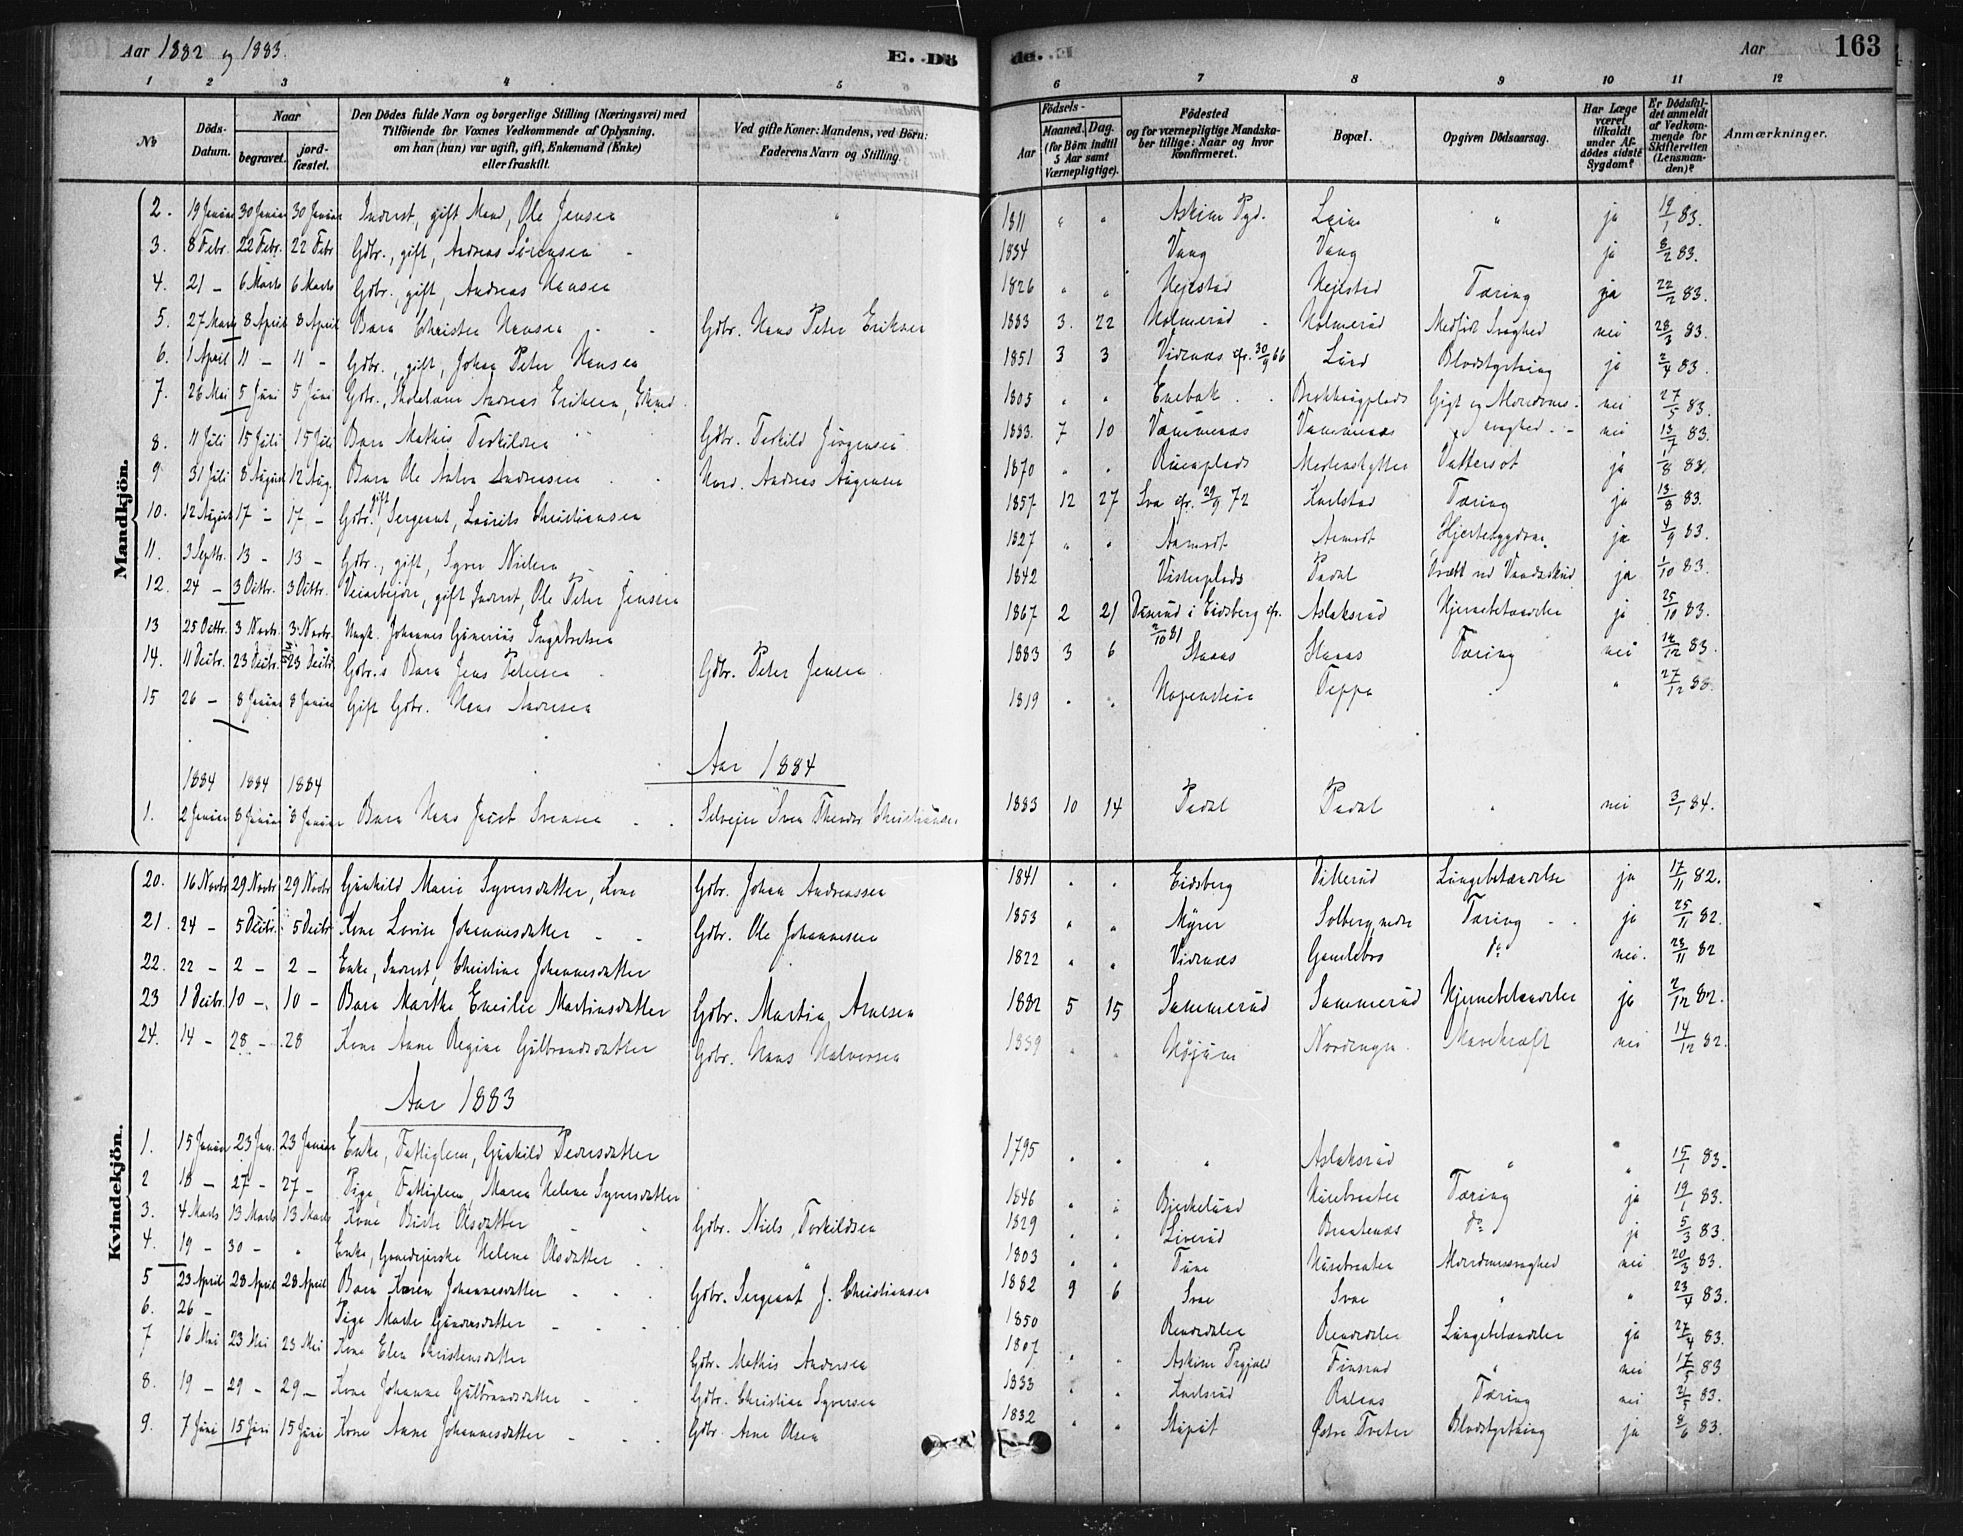 Aar 1882 og 1883. E. Dö
de. Aar 163
1 2 3 4 5 6 7 8 9 10 11 12
No Döds-Datum. Naar begravet. jord-fæstet. Den Dödes fulde Navn og borgerlige Stilling (Næringsvei) med Tilföiende for Voxnes Vedkommende af Oplysning, om han (hun) var ugift, gift, Enkemand (Enke) eller fraskilt. Ved gifte Koner: Mandens, ved Börn: Faderens Navn og Stilling. Födsels- Aar Maaned. Dag. (for Börn indtil 5 Aar samt Værnepligtige). Födested og for værnepligtige Mandskaber tillige: Naar og hvor Konfirmeret. Bopæl. Opgiven Dödsaarsag. Har Læge været tilkaldt under Afdödes sidste Sygdom? Er Dödsfaldet anmeldt af Vedkommende for Skifteretten (Lensmanden)? Anmærkninger.
Mandkjön.
2. 19 Januar 30 Januar 30 Januar Inderst, gift Mand, Ole Jensen " 1811 " " Askim Pgd. " ja 19/1 83.
3. 8 Febr. 22 Febr. 22 Febr Gdbr., gift, Andreas Sörensen 1834 Vang Vang ja 8/2 83.
4. 21 - 6 Marts 6 Marts Gdbr., gift, Andreas Hansen 1826 " " Hejlstad Hejlstad Tæring ja 22/2 83.
5. 27 Marts 8 April 8 April Barn Christen Hansen Gdbr. Hans Peter Eriksen 1883 3. 22 Holmerud Holmerud Medfödt Svaghed nei 28/3 83.
6. 1 April 11 - 11 - Gdbr., gift, Johan Peter Hansen 1851 3 3 Vidnæs cfr. 30/9 66 Lund Blodstyrtning ja 2/4 83.
7. 26 Mai 5 Juni 5 Juni Gdbr., Andreas Eriksen, Ekmd. 1805 " " Enebak Gigt og Alderdoms- svaghed nei 27/5 83.
8. 11 Juli 15 Juli 15 Juli Barn Mathis Torkildsen Gdbr. Torkild Jörgensen 1883. 7 10 Vammenæs Vammenæs nei 13/7 83.
9 31 Juli 8 August 12 Aug. Barn Ole Anton Andreasen Andreas 1870 " " Vattersot ja 1/8 83.
10. 12 August 17 - 17 - Gdbr., gift Sergeant, Laurits Christiansen 1857 12 27 Svae cfr. 29/9 72 Karlstad Tæring ja 13/8 83.
11. 3 Septbr. 13 - 13 - Gdbr., gift, Syver Nielsen 1827 " " Aamodt Aamodt Hjertesygdom ja 4/9 83.
12. 24 - 3 Octbr. 3 Octbr. Veiarbejder, gift Inderst, Ole Peter Jensen 1842 Visterplads Padal Dræbt ved Vaadeskud ja 1/10 83.
13 25 Octbr. 3 Novbr. 3 Novbr. Ungk. Johannes Gunerius Ingebretsen 1867 2 21 i Eidsberg cfr. 2/10 81 Aslaksrud Hjernebetændelse ja 25/10 83.
14. 11 Decbr. 23 Decbr. 23 Decbr Gdbr.s Barn Jens Petersen Gdbr. Peter Jensen 1883 3 6 Skaas Skaas Tæring nei 12/12 83.
15 26 - 8 Januar 8 Januar Gift Gdbr. Hans Andersen 1819 " " Hagenstein Teppa " " 27/12 83.
Aar 1884
1884 1884 1884
1. 2 Januar 8 Januar 8 Januar Barn Hans Jacob Svensen Selvejer Sven Theodor Christiansen 1883 10 14 Padal Padal " nei 3/1 84.
Kvindekjön.
20. 16 Novbr 29 Novbr 29 Novbr Gunhild Marie Syversdatter, Kone Gdbr. Johan Andreassen 1841 " " Eidsberg Lungebetændelse ja 17/11 82.
21. 24 - 5 Decbr. 5 Decbr Kone Lovise Johannesdatter Gdbr. Ole Johannesen 1853 " " Myrer Solberg nedre Tæring ja 25/11 82.
22. 22 - 2 - 2 - Enke, Inderst, Christine Johannesdatter 1822 " " Vidnæs Gamlebro do nei. 23/11 82
23 1 Decbr. 10 - 10 - Barn Marthe Emilie Martinsdatter Gdbr. Martin Arnesen 1882 5 15 Sammerud Sammerud Hjernebetændelse ja 2/12 82.
24. 14 - 28 - 28 Kone Anne Regine Gulbrandsdatter Gdbr. Hans Halvorsen 1839 " " Højum Mavekræft nei 14/12 82.
Aar 1883
1. 15 Januar 23 Jan. 23 Januar Enke, Fattiglem, Gunhild Pedersdatter 1795 " " " Aslaksrud " " 15/1 83.
2 18 - 27 - 27 - Pige, Fattiglem, Maren Helene Syversdatter 1846 " " Bjerkelund Husebraaten Tæring ja 19/1 83.
3. 4 Marts 13 Marts 13 Marts Kone Birte Olsdatter Gdbr. Niels Torkildsen 1829 " " Liverud Braatenæs do ja 5/3 83.
4. 19 - 30 - " Enke, Gaardejerske Helene Olsdatter " 1803 " " Tune Husebraaten Alderdomssvaghed nei 20/3 83.
5 23 April 28 April 28 April Barn Karen Johannesdatter Gdbr. Sergeant J. Christiansen 1882 9 6 Svae Svae " " 23/4 83.
6. 26 - Pige Marte Gundersdatter 1850 Lungebetændelse ja 27/4 83.
7 16 Mai 23 Mai 23 Mai Kone Elen Christensdatter Gdbr. Mathis Andersen 1807 " " Askim Prgjeld Finsrud " nei 17/5 83
8. 19 - 29 - 29 - Kone Johanne Gulbrandsdatter Gdbr. Christian Syversen 1833 " " Karlsrud Tæring nei 21/5 83.
9. 7 Juni 15 Juni 15 Juni Kone Anne Johannesdatter Gdbr. Arne Olsen 1832 " " Østre Tveter Blodstyrtning ja 8/6 83.